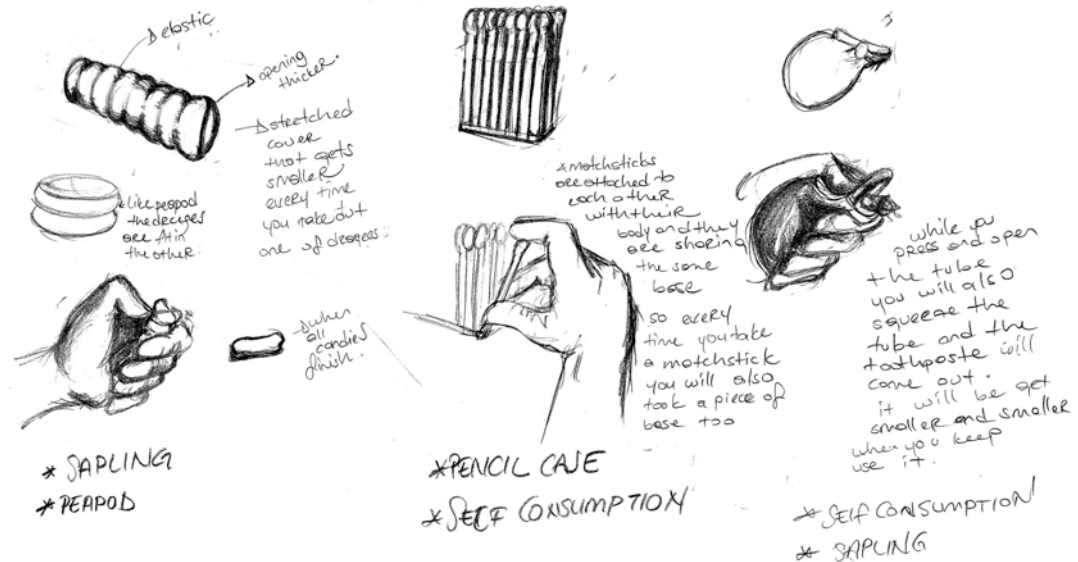 elastic
opening
thicker.
stretched
cover
that gets
smaller
every time
you take out
one of
like peapod
the
are fit in
the other.
when
all
candies
finish.
* SAPLING
* PEAPOD
*matchsticks
are attached to
each other
with their
body and they
are sharing
the same
base
so every
time you take
a matchstick
you will also
took a piece of
base too
*PENCIL CASE
*SELF CONSUMPTION
while you
press and open
the tube
you will also
squeeze the
tube and the
toothpaste will
come out.
it will be get
smaller and smaller
when you keep
use it.
* SELF CONSUMPTION
* SAPLING